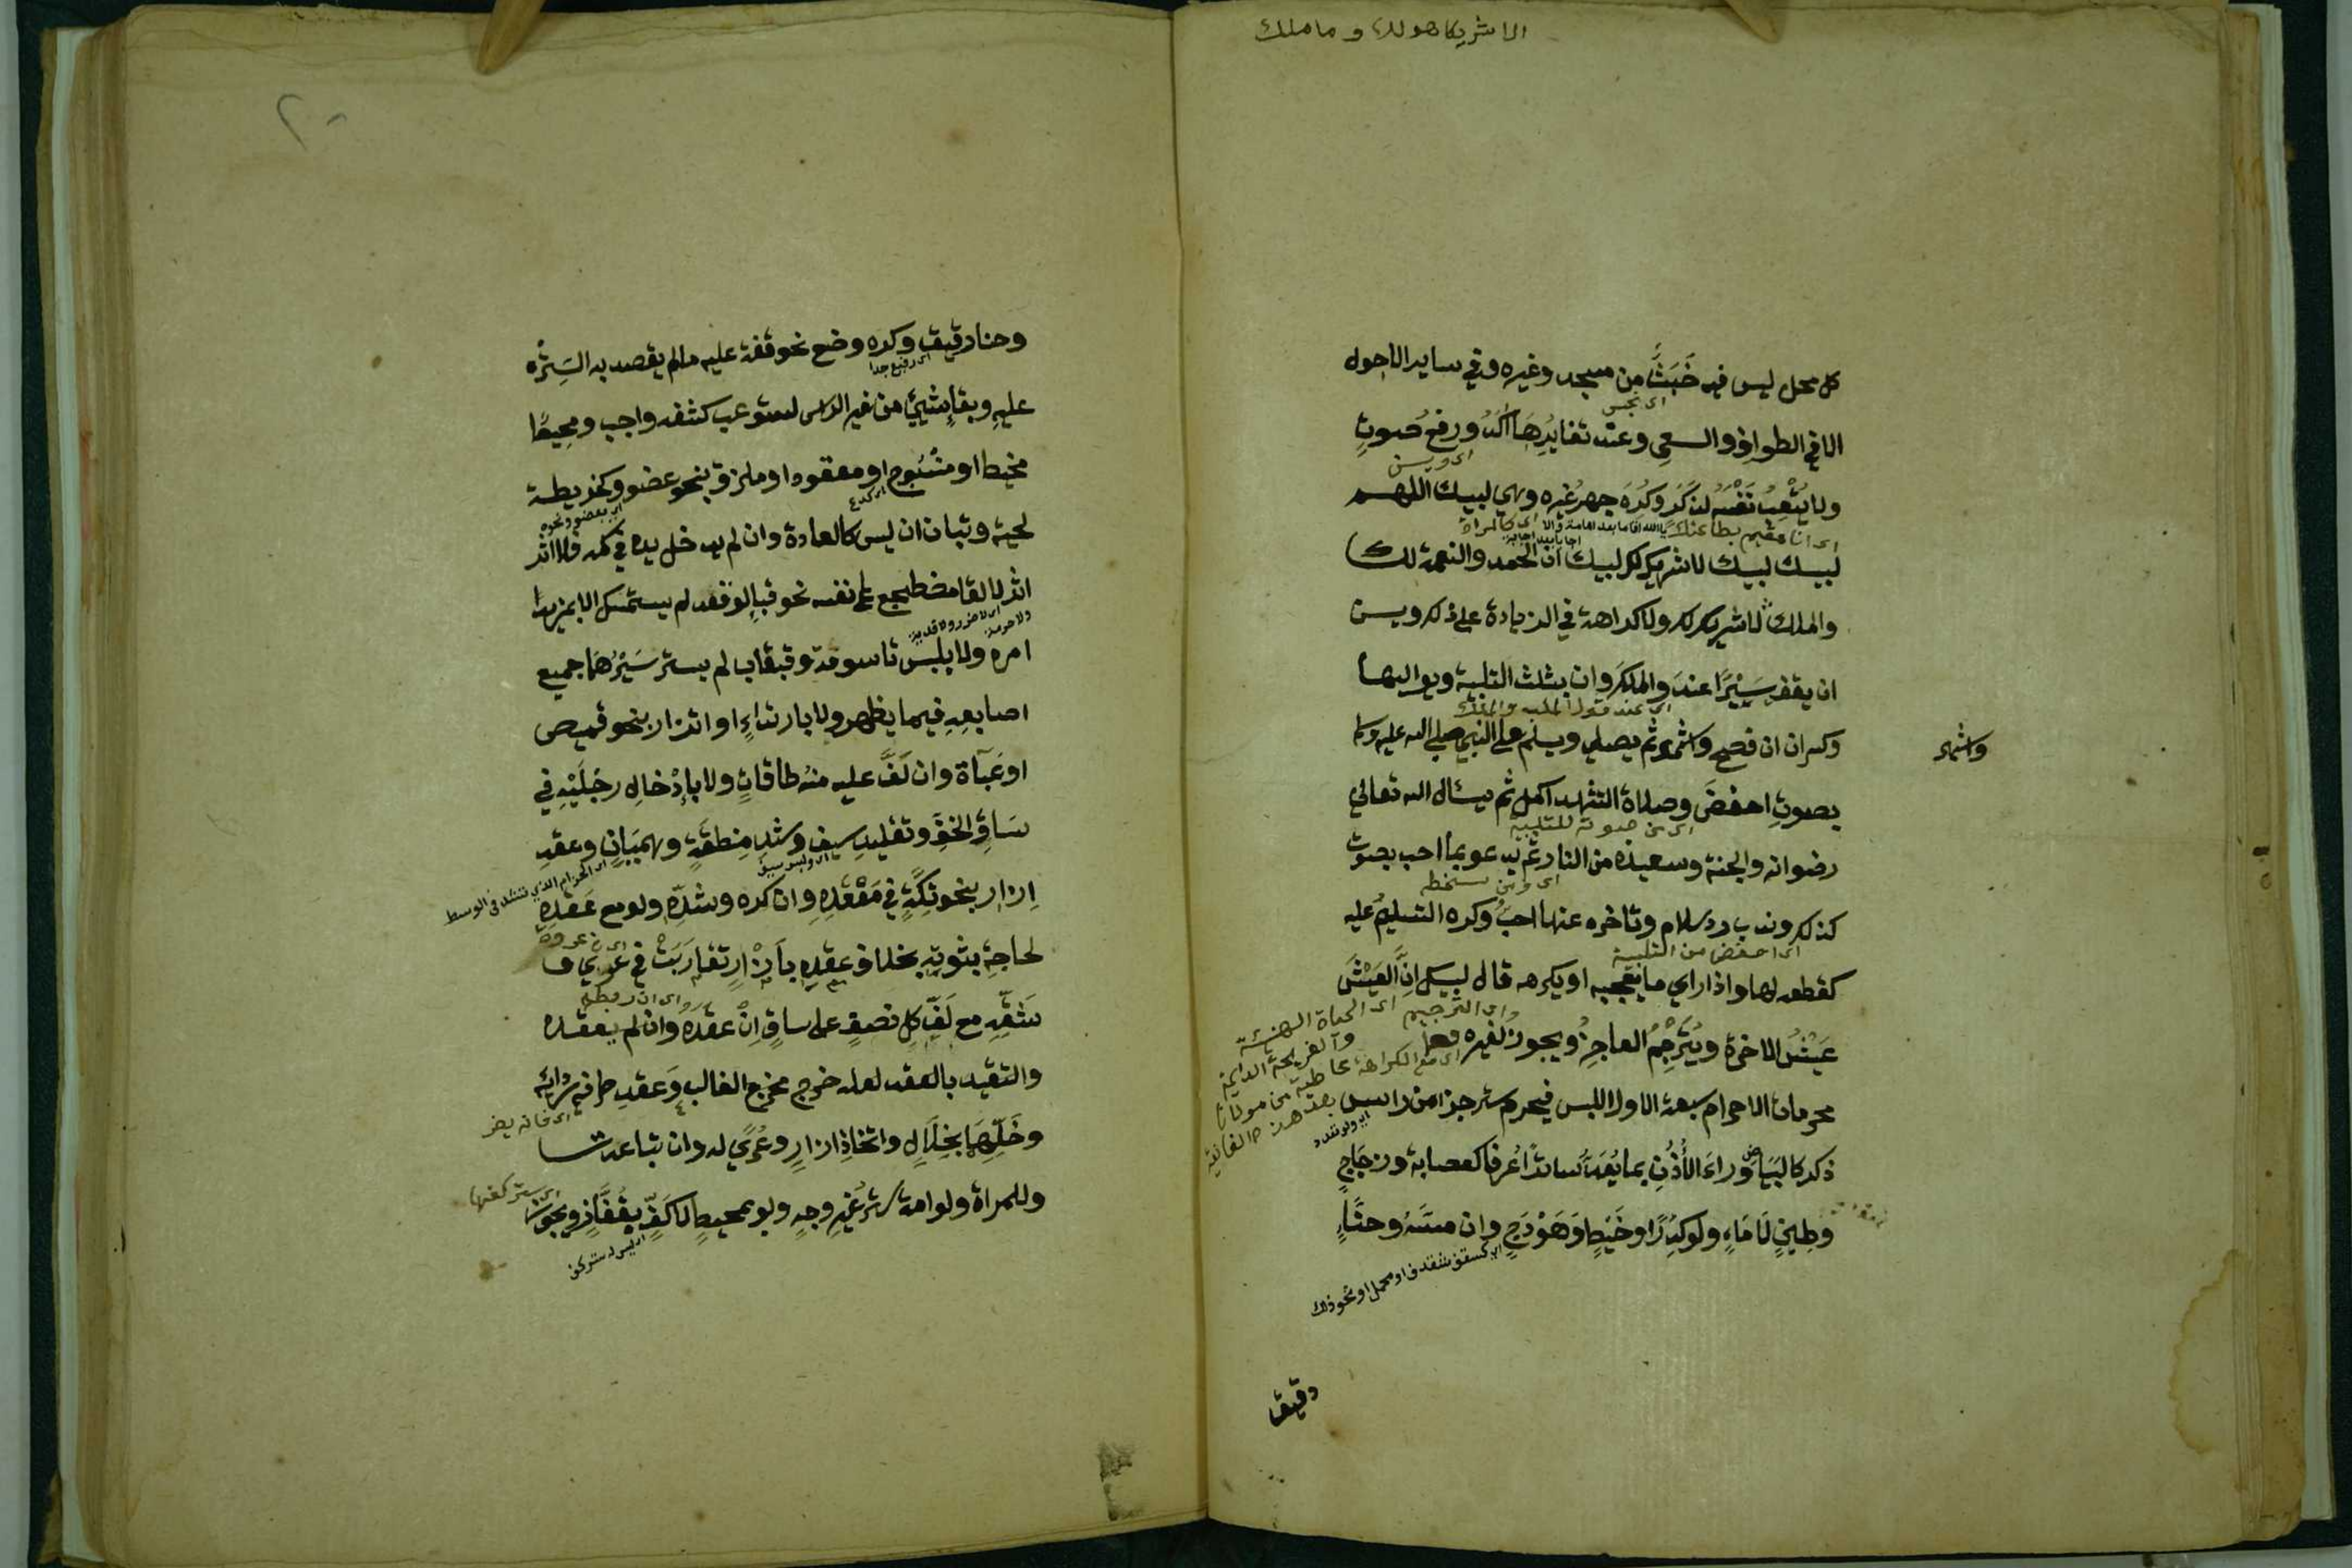 الا شريكا هو لك وما ملك
كل محل ليس فيه خَبَثٌ من مسجد وغيره وفي ساير الاحول
اى نجس
الا في الطواف والسعي وعند تغايُرِها آكد ورفع صوتٍ
اى ويسن
ولا يُتْعِبُ نَفْسَه لذَكَر وكُرِهَ جهر غيره وهي لبيك اللهم
اى انا مقيم بطاعتك
اى كالمراة
لبيك لبيك لا شريك لك لبيك ان الحمد والنعمة لك
والملك لا شريك لك ولا كراهة في الزيادة على ذلك ويسن
ان يقف سَيْرًا عند والملك وان يثلث التلبية ويواليها
وكسر ان ان فصح واشهر ثم يصلي ويسلم على النبي صلى الله عليه وسلم
واشهر
بصوتِ اخفضَ وصلاة التشهد اكمل ثم يسال الله تعالى
اى من صوته للتلبية
رضوانه والجنة وسعيذه من النار ثم يدعو بما احب بصوت
اى ومن سخطه
كذلك وندب رد سلام وتاخره عنها احبُّ وكره التسليم عليه
اى اخفض من التلبية
كقطعه لها واذا راي ما يعجبه او يكره قال لبيك اِنَّ العَيْشَ
اى الحياة الهنيئة
عَيْشُ الاخرة ويُتَرْجِمُ العاجِزُ ويجوز لغيره
اى مع الكراهة
محرمات الاحرام سبعة الاول اللبس فيحرم ستر جزء من راس
ذكر كالبَيَاض وراءَ الأُذُنِ بما يُعَدُّ ساترًا عُرفا كعصابة وزجاجٍ
وطِينٍ لَا مَاءٍ ولو كَدِرًا وخَيْطٍ وَهَوْدَجٍ وان مسَّهُ وحنَّاءٍ
اى كسقف شقدف او محمل او نحو ذلك
رقيق
٢٠
وحنا رقيق وكره وضع نحو قفة عليه مالم يقصد به السِتْرَه
اى رفيع جدا
عليه وبقاء شيئ من غير الراس لستوعب كشفه واجب ومحيطًا
مخيط او منسوج او معقود او ملزق بنحو عضو وكخريطة
لحية وتبان ان ليس كالعادة وان لم يدخل يده في كمه فلا اثر
اثر لالقا مضطجع على نفسه نحو قباء لو قعد لم يستمسك الا بمزيد
امره ولا بلبس تاسومة وقبقاب لم يستر سَيْرُهُمَا جميع
اصابعِهِ فيما يظهر ولا بارتداءٍ او اتزار بنحو قميص
او عَبآة وان لَفَّ عليه منهُ طاقاتٍ ولا بإدْخالِ رجْلَيْهِ في
سَاقِ الخُفِّ وتقليدِ سيف وشدِ مِنطَقَةٍ وهميَانٍ وعقدِ
اى الحزام الذي تشد في الوسط
اِزار بنحو تِكَّةٍ في مَعْقَدِهِ وان كره وشدِّهِ ولو مع عَقْدِهِ
لحاجة ثبوتِهِ بخلاف عقدِهِ بأزْرارٍ تقارَبَتْ في عُري
شَقِّهِ مع لَفِّ كل نصفٍ على ساقٍ اِنْ عقدَهُ وان لم يعقده
والتقيد بالعقد لعله خرج مخرج الغالب وَعقدِ طرفي ردائه
وخَلِّهِمَا بِخِلَالٍ واتخاذِ ازارٍ وعُرًي له وان تباعدت
وللمراة ولو امة ستر غيرِ وجهٍ ولو بمحيطٍ لا كَفٍّ بِقُفَّازٍ ويجوز